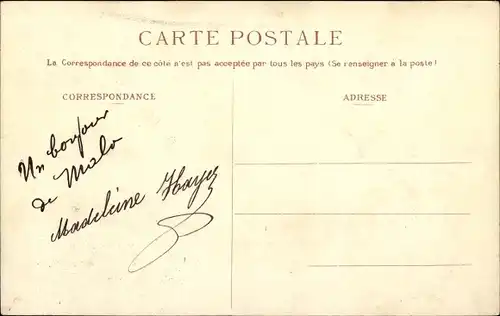 CARTE POSTALE
La Correspondance de ce côté n'est pas acceptée par tous les pays (Se renseigner à la poste)
CORRESPONDANCE
ADRESSE
Un bonjour
de Malo
Madeleine